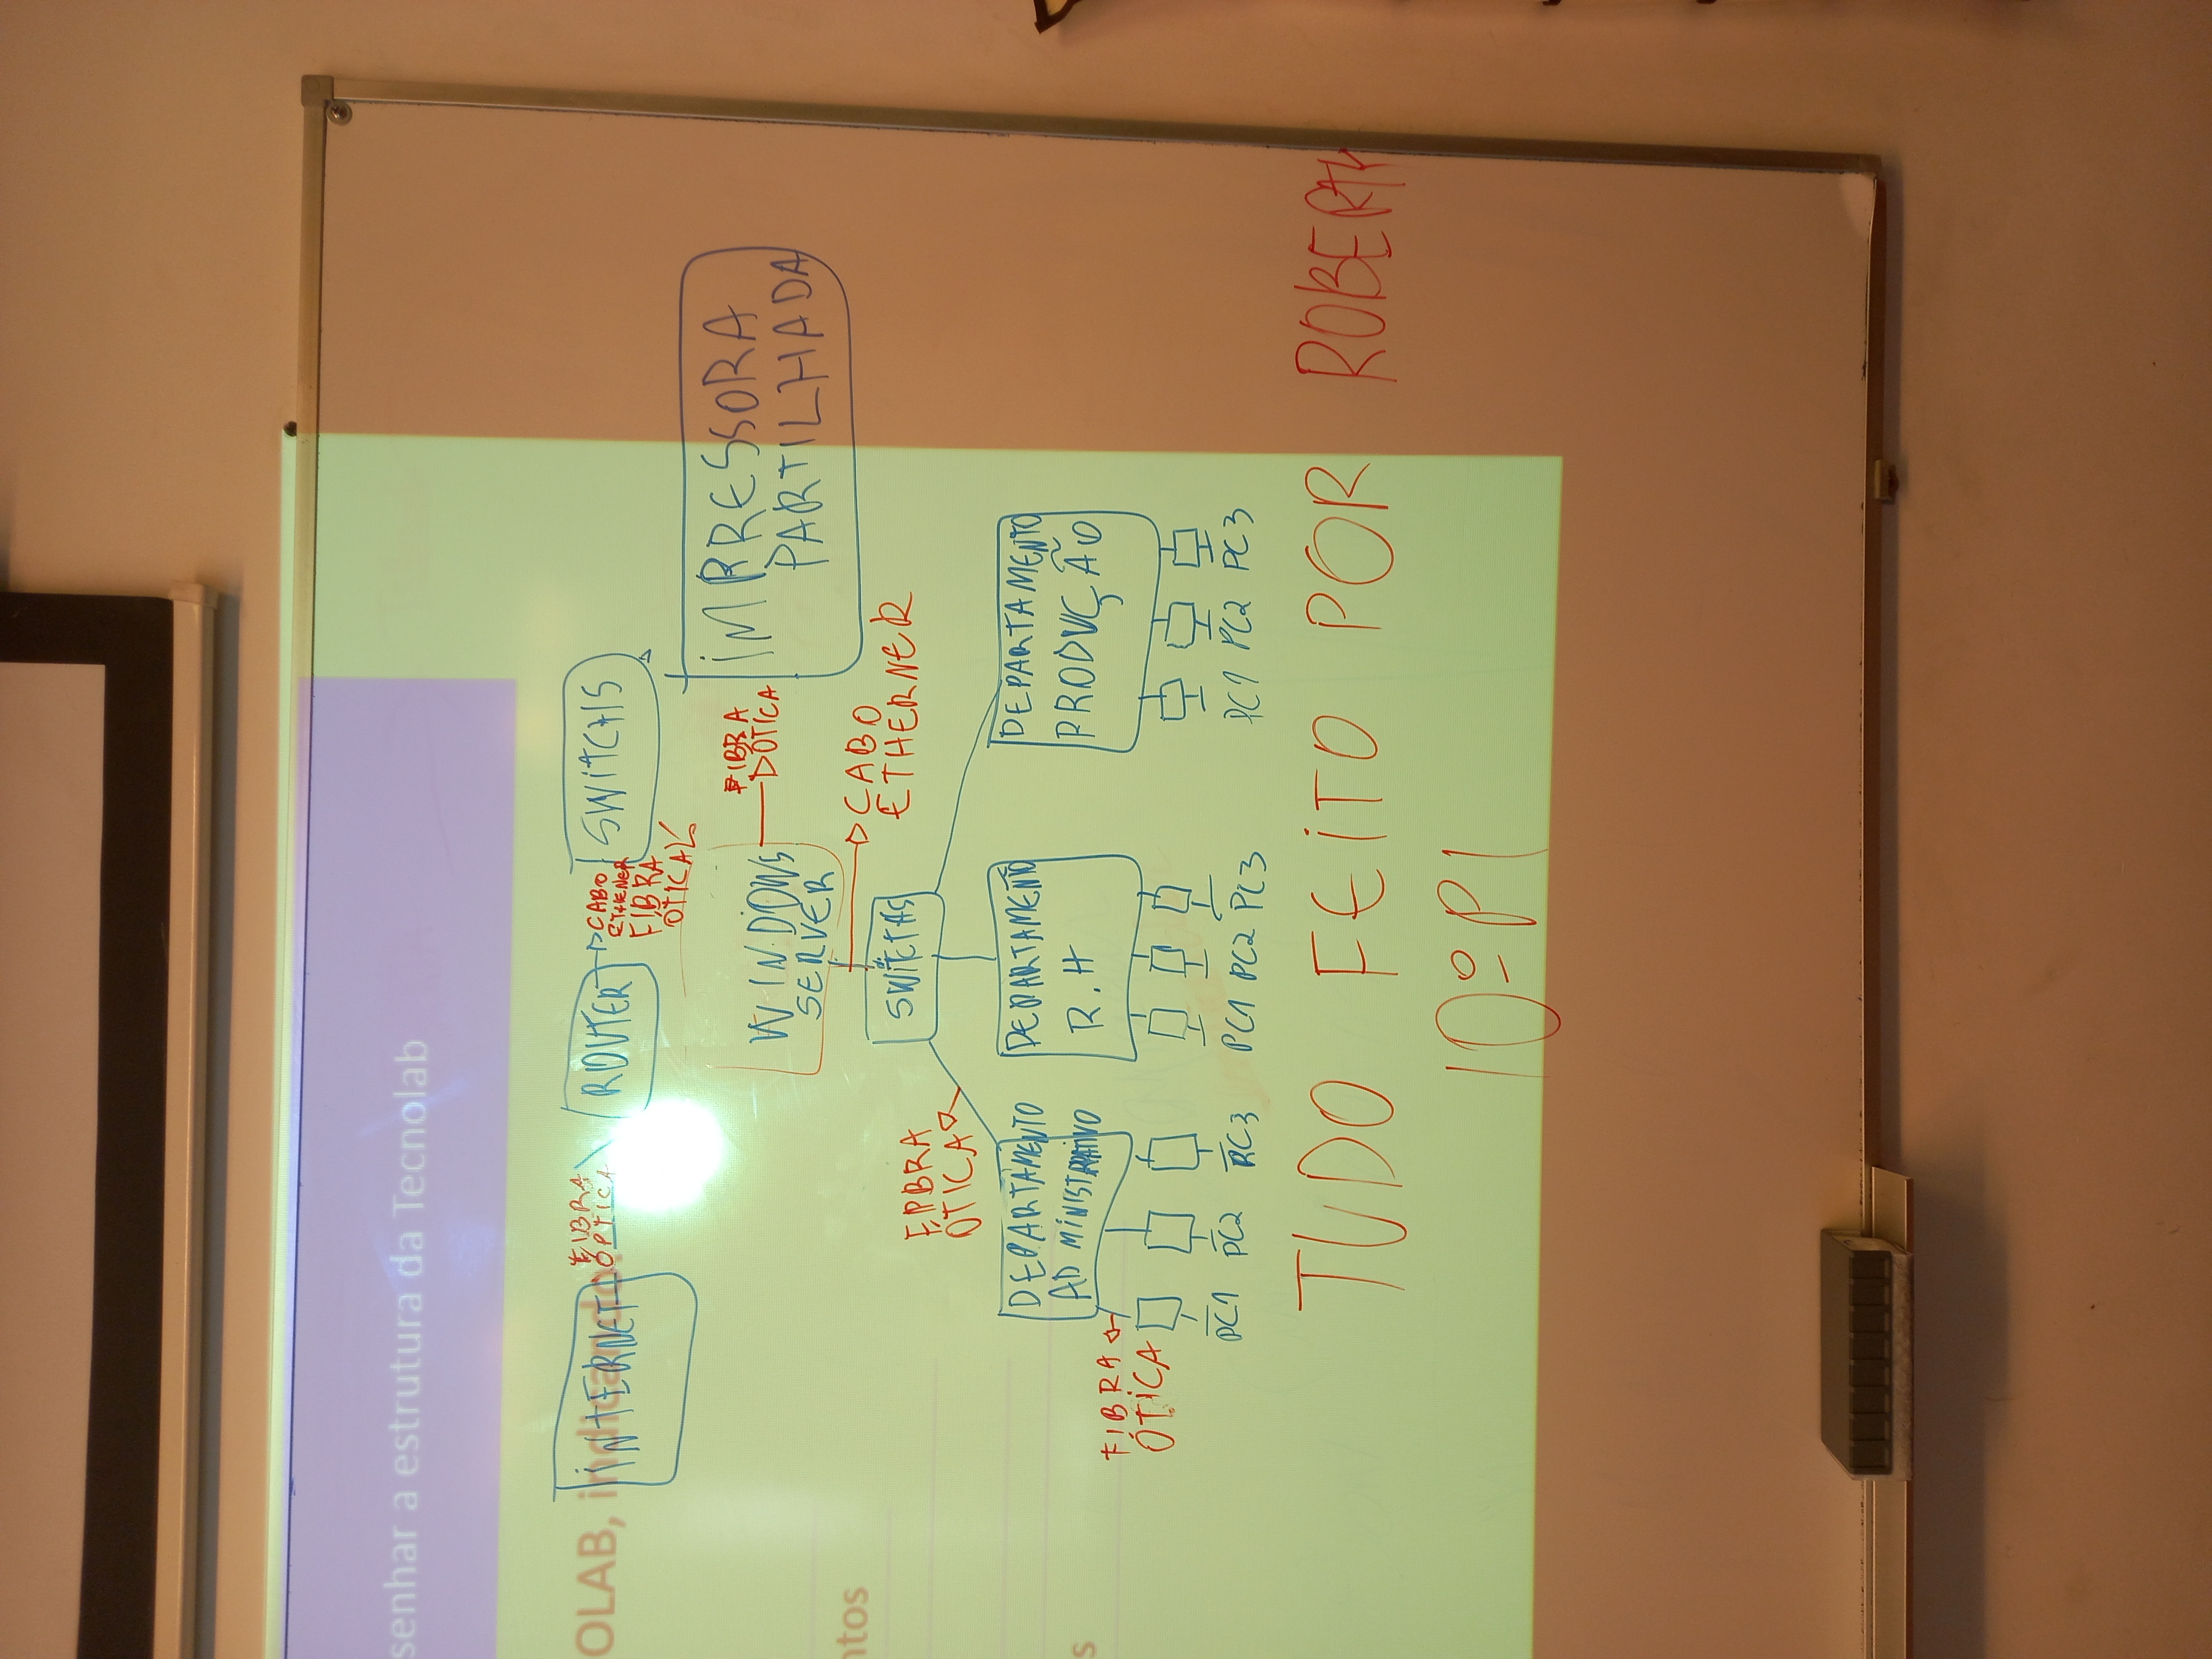 senhar a estrutura da Tecnolab
OLAB, indicando:
INTERNET
FIBRA
ÓPTICA
ROUTER
CABO
ETHENER
FIBRA
ÓTICA
SWITCHIS
WINDOWS
SERVER
FIBRA
ÓTICA
IMPRESSORA
PARTILHADA
ntos
CABO
ETHERNER
FIBRA
ÓTICA
DEPARTAMENTO
ADMINISTRATIVO
DEPARTAMENTO
R.H
DEPARTAMENTO
PRODUÇÃO
s
FIBRA
ÓTICA
PC1 PC2 PC3
PC1 PC2 PC3
PC1 PC2 PC3
TUDO FEITO POR
10º PI